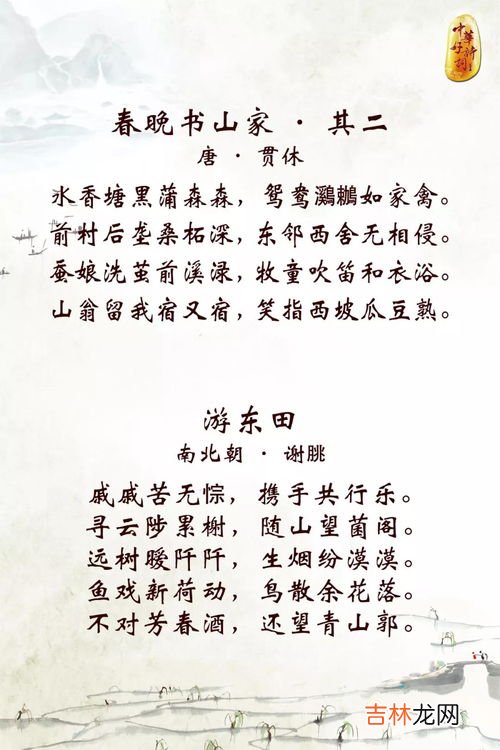 中华好诗词
春晚书山家·其二
唐·贯休
水香塘黑蒲森森，鸳鸯鸂鶒如家禽。
前村后垄桑柘深，东邻西舍无相侵。
蚕娘洗茧前溪渌，牧童吹笛和衣浴。
山翁留我宿又宿，笑指西坡瓜豆熟。
游东田
南北朝·谢朓
戚戚苦无悰，携手共行乐。
寻云陟累榭，随山望菌阁。
远树暧阡阡，生烟纷漠漠。
鱼戏新荷动，鸟散余花落。
不对芳春酒，还望青山郭。
吉林龙网